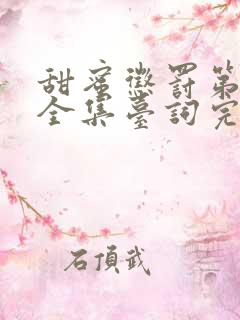 甜蜜懲罰第
全集臺詞完
石頂武